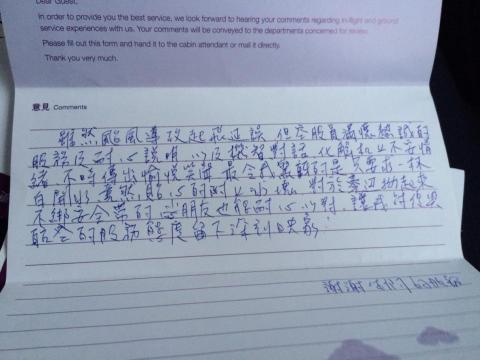 Dear Guest,
In order to provide you the best service, we look forward to hearing your comments regarding in-flight and ground
service experiences with us. Your comments will be conveyed to the departments concerned for review.
Please fill out this form and hand it to the cabin attendant or mail it directly.
Thank you very much.
意見 Comments
雖然颱風導致起飛延誤,但空服員滿懷熱誠的
服務及耐心說明,以及機智對話,化解和
緒,不時傳出愉悅笑聲,最令我驚訝的是只要求一杯
白開水,竟然貼心的附上,對於
不綁安全帶的小朋友也很耐心以對,讓我對復興
航空的服務態度留下深刻映象
謝謝